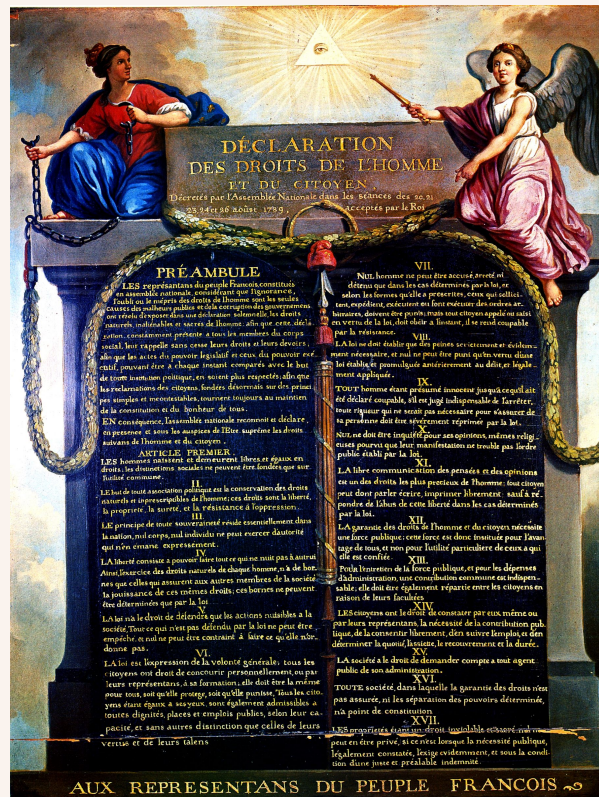 DÉCLARATION
DES DROITS DE L'HOMME
ET DU CITOYEN,
Décretés par l'Assemblée Nationale dans les séances des 20, 21
23, 24 et 26 août 1789, acceptés par le Roi
PRÉAMBULE
LES représantans du peuple François, constitués
en assemblée nationale, considérant que l'ignorance,
l'oubli ou le mépris des droits de l'homme sont les seules
causes des malheurs publics et de la corruption des gouvernemens
ont résolu d'exposer dans une déclaration solemnelle, les droits
naturels, inaliénables et sacrés de l'homme, afin que cette décla-
ration, constamment présente a tous les membres du corps
social, leur rappelle sans cesse leurs droits et leurs devoirs;
afin que les actes du pouvoir législatif et ceux du pouvoir exé-
cutif, pouvant être a chaque instant comparés avec le but
de toute institution politique, en soient plus respectés; afin que
les réclamations des citoyens, fondées désormais sur des princi-
pes simples et incontestables, tournent toujours au maintien
de la constitution et du bonheur de tous.
EN conséquence, l'assemblée nationale reconnoit et déclare,
en presence et sous les auspices de l'Etre suprême les droits
suivans de l'homme et du citoyen.
ARTICLE PREMIER.
LES hommes naissent et demeurent libres et égaux en
droits; les distinctions sociales ne peuvent être fondées que sur
l'utilité commune.
II.
LE but de toute association politique est la conservation des droits
naturels et inprescriptibles de l'homme; ces droits sont la liberté,
la propriété, la sureté, et la résistance à l'oppression.
III.
LE principe de toute souveraineté réside essentiellement dans
la nation, nul corps, nul individu ne peut exercer d'autorité
qui n'en émane expressément.
IV.
LA liberté consiste a pouvoir faire tout ce qui ne nuit pas à autrui
Ainsi, l'exercice des droits naturels de chaque homme, n'a de bor-
nes que celles qui assurent aux autres membres de la société
la jouissance de ces mêmes droits; ces bornes ne peuvent
être déterminées que par la loi
V.
LA loi n'a le droit de défendre que les actions nuisibles a la
société. Tout ce qui n'est pas défendu par la loi ne peut être
empêché, et nul ne peut être contraint à faire ce qu'elle n'or-
donne pas.
VI.
LA loi est l'expression de la volonté générale; tous les
citoyens ont droit de concourir personnellement, ou par
leurs représentans, à sa formation; elle doit être la même
pour tous, soit qu'elle protege, soit qu'elle punisse, Tous les cito-
yens étant égaux à ses yeux, sont également admissibles à
toutes dignités, places et emplois publics, selon leur ca-
pacité, et sans autres distinction que celles de leurs
vertus et de leurs talens
VII.
NUL homme ne peut être accusé, arreté ni
détenu que dans les cas déterminés par la loi, et
selon les formes qu'elle a prescrites, ceux qui sollici-
tent, expédient, exécutent ou font exécuter des ordres ar-
bitraires, doivent être punis; mais tout citoyen appelé ou saisi
en vertu de la loi, doit obéir a l'instant, il se rend coupable
par la résistance.
VIII.
LA loi ne doit établir que des peines strictement et évidem-
ment nécessaire, et nul ne peut être puni qu'en vertu d'une
loi établie, et promulguée antérierement au délit, et légale-
ment appliquée.
IX.
TOUT homme étant présumé innocent jusqu'a ce qu'il ait
été déclaré coupable, s'il est jugé indispensable de l'arrêter,
toute rigueur qui ne serait pas nécessaire pour s'assurer de
sa personne doit être sévèrement réprimée par la loi.
X.
NUL ne doit être inquiété pour ses opinions, mêmes religi-
euses pourvu que leur manifestation ne trouble pas l'ordre
public établi par la loi.
XI.
LA libre communication des pensées et des opinions
est un des droits les plus precieux de l'homme; tout citoyen
peut dont parler écrire, imprimer librement sauf a ré-
pondre de l'abus de cette liberté dans les cas déterminés
par la loi.
XII.
LA garantie des droits de l'homme et du citoyen nécessite
une force publique; cette force est donc instituée pour l'avan-
tage de tous, et non pour l'utilité particuliere de ceux a qui
elle est confiée.
XIII.
POUR l'entretien de la force publique, et pour les dépenses
d'administration, une contribution commune est indispen-
sable; elle doit être également répartie entre les citoyens en
raison de leurs facultées
XIV.
LES citoyens ont le droit de constater par eux même ou
par leurs représentans, la nécessité de la contribution pub-
lique, de la consentir librement, d'en suivre l'emploi, et d'en
déterminer la quotité, l'assiette, le recouvrement et la durée.
XV.
LA société a le droit de demander compte a tout agent
public de son administration.
XVI.
TOUTE société, dans laquelle la garantie des droits n'est
pas assurée, ni les séparation des pouvoirs déterminée,
n'a point de constitution
XVII.
LES proprietés étant un droit inviolable et sacré, nul ne
peut en être privé, si ce n'est lorsque la nécessité publique,
légalement constatée, l'exige evidemment, et sous la condi-
tion d'une juste et préalable indemnité.
AUX REPRESENTANS DU PEUPLE FRANCOIS